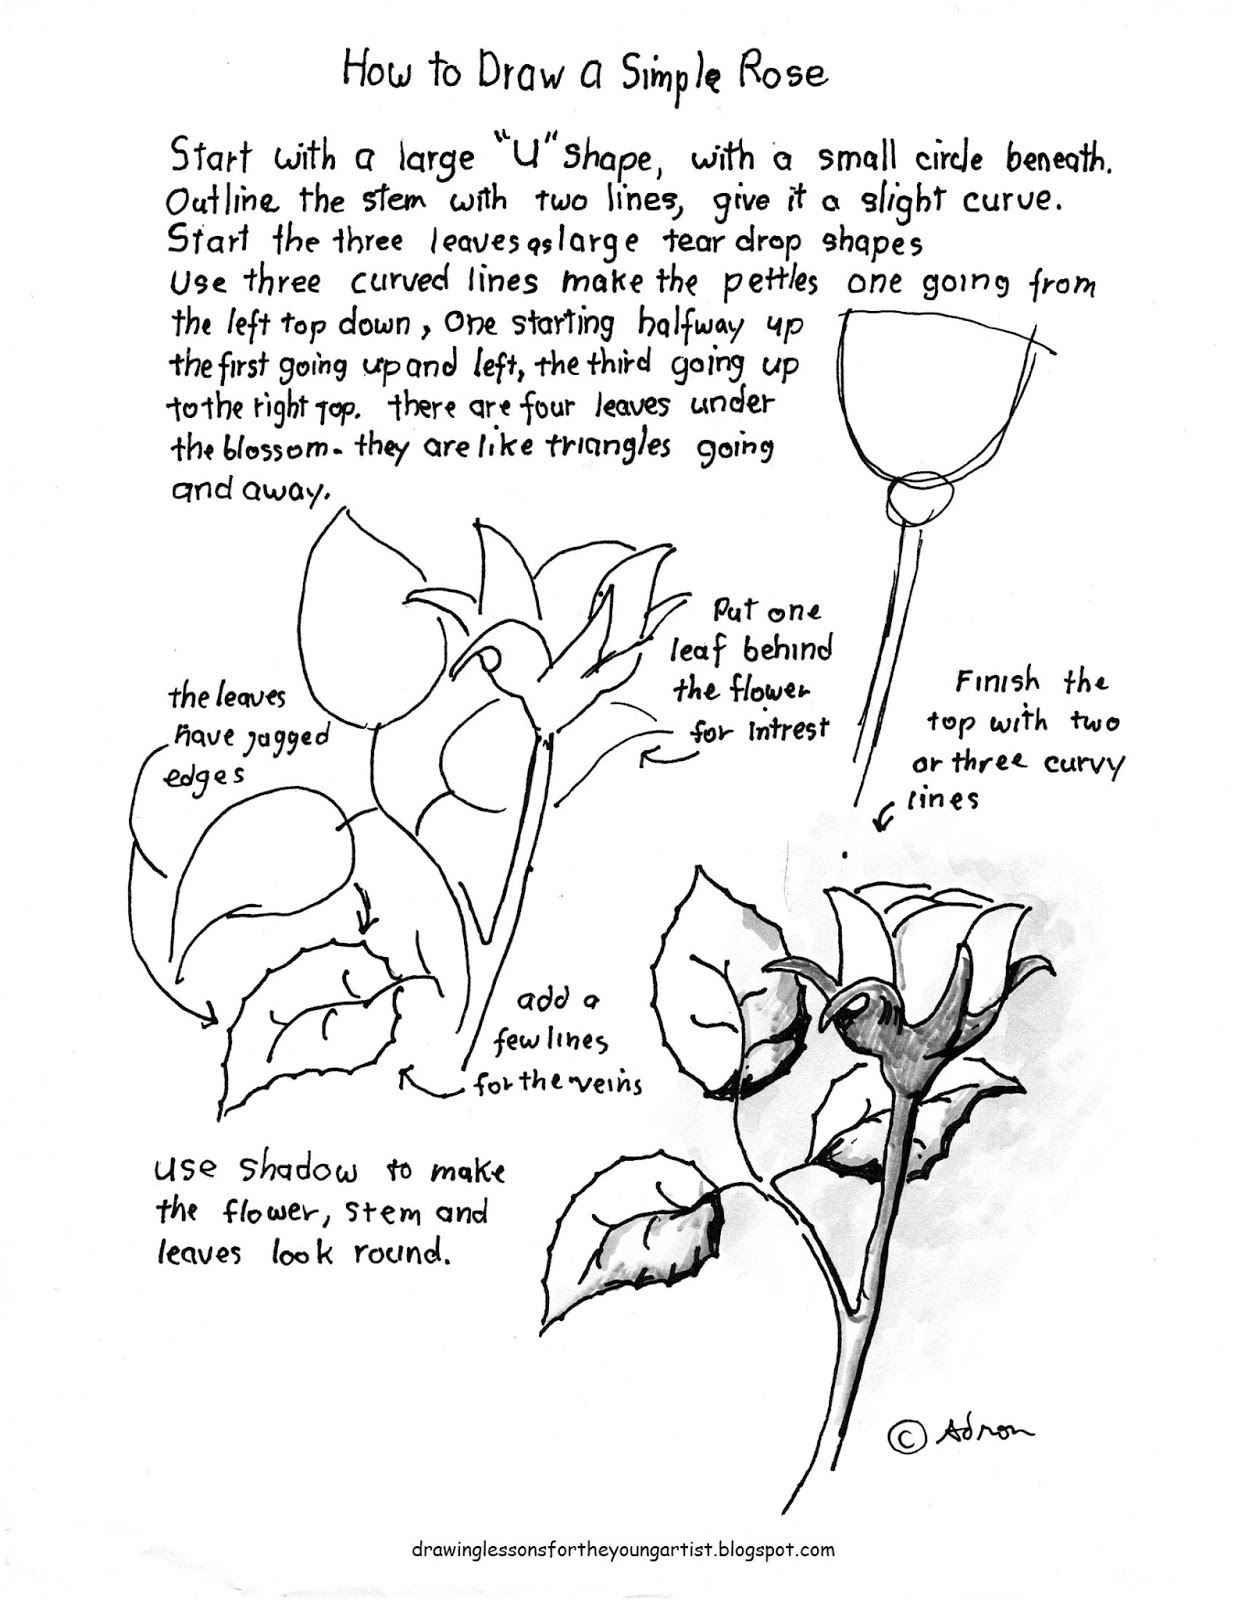 How to Draw a Simple Rose
Start with a large "U" shape, with a small circle beneath.
Outline the stem with two lines, give it a slight curve.
Start the three leaves as large tear drop shapes
Use three curved lines make the pettles one going from
the left top down, One starting halfway up
the first going up and left, the third going up
to the right top. there are four leaves under
the blossom. they are like triangles going
and away.
Put one
leaf behind
the flower
for intrest
the leaves
have jagged
edges
Finish the
top with two
or three curvy
lines
add a
few lines
for the veins
use shadow to make
the flower, stem and
leaves look round.
© Adron
drawinglessonsfortheyoungartist.blogspot.com